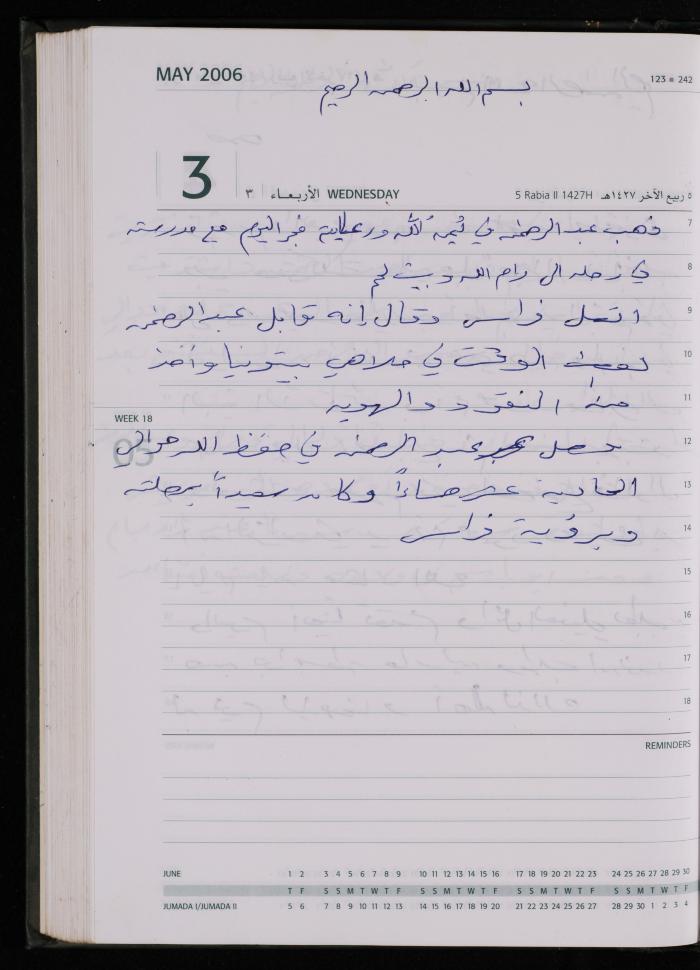 MAY 2006
123 ■ 242
بسم الله الرحمن الرحيم
3
٣ الأربعاء WEDNESDAY
5 Rabia II 1427H ٥ ربيع الآخر ١٤٢٧هـ
7
ذهب عبد الرحمن في الله ورعايته فجر اليوم مع مدرسته
8
في رحله الى رام الله وبيت لحم
9
اتصل فراس وقال إنه قابل عبد الرحمن
10
الوقت في ملاهي بيتونيا وأخذ
11
منه النقود والهويه
WEEK 18
12
وصل عبد الرحمن في حفظ الله حوالي
13
الحادية عشر مساءً وكان سعيداً برحلته
14
وبرؤية فراس
15
16
17
18
REMINDERS
JUNE 1 2 3 4 5 6 7 8 9 10 11 12 13 14 15 16 17 18 19 20 21 22 23 24 25 26 27 28 29 30
T F S S M T W T F S S M T W T F S S M T W T F S S M T W T F
JUMADA I/JUMADA II 5 6 7 8 9 10 11 12 13 14 15 16 17 18 19 20 21 22 23 24 25 26 27 28 29 30 1 2 3 4